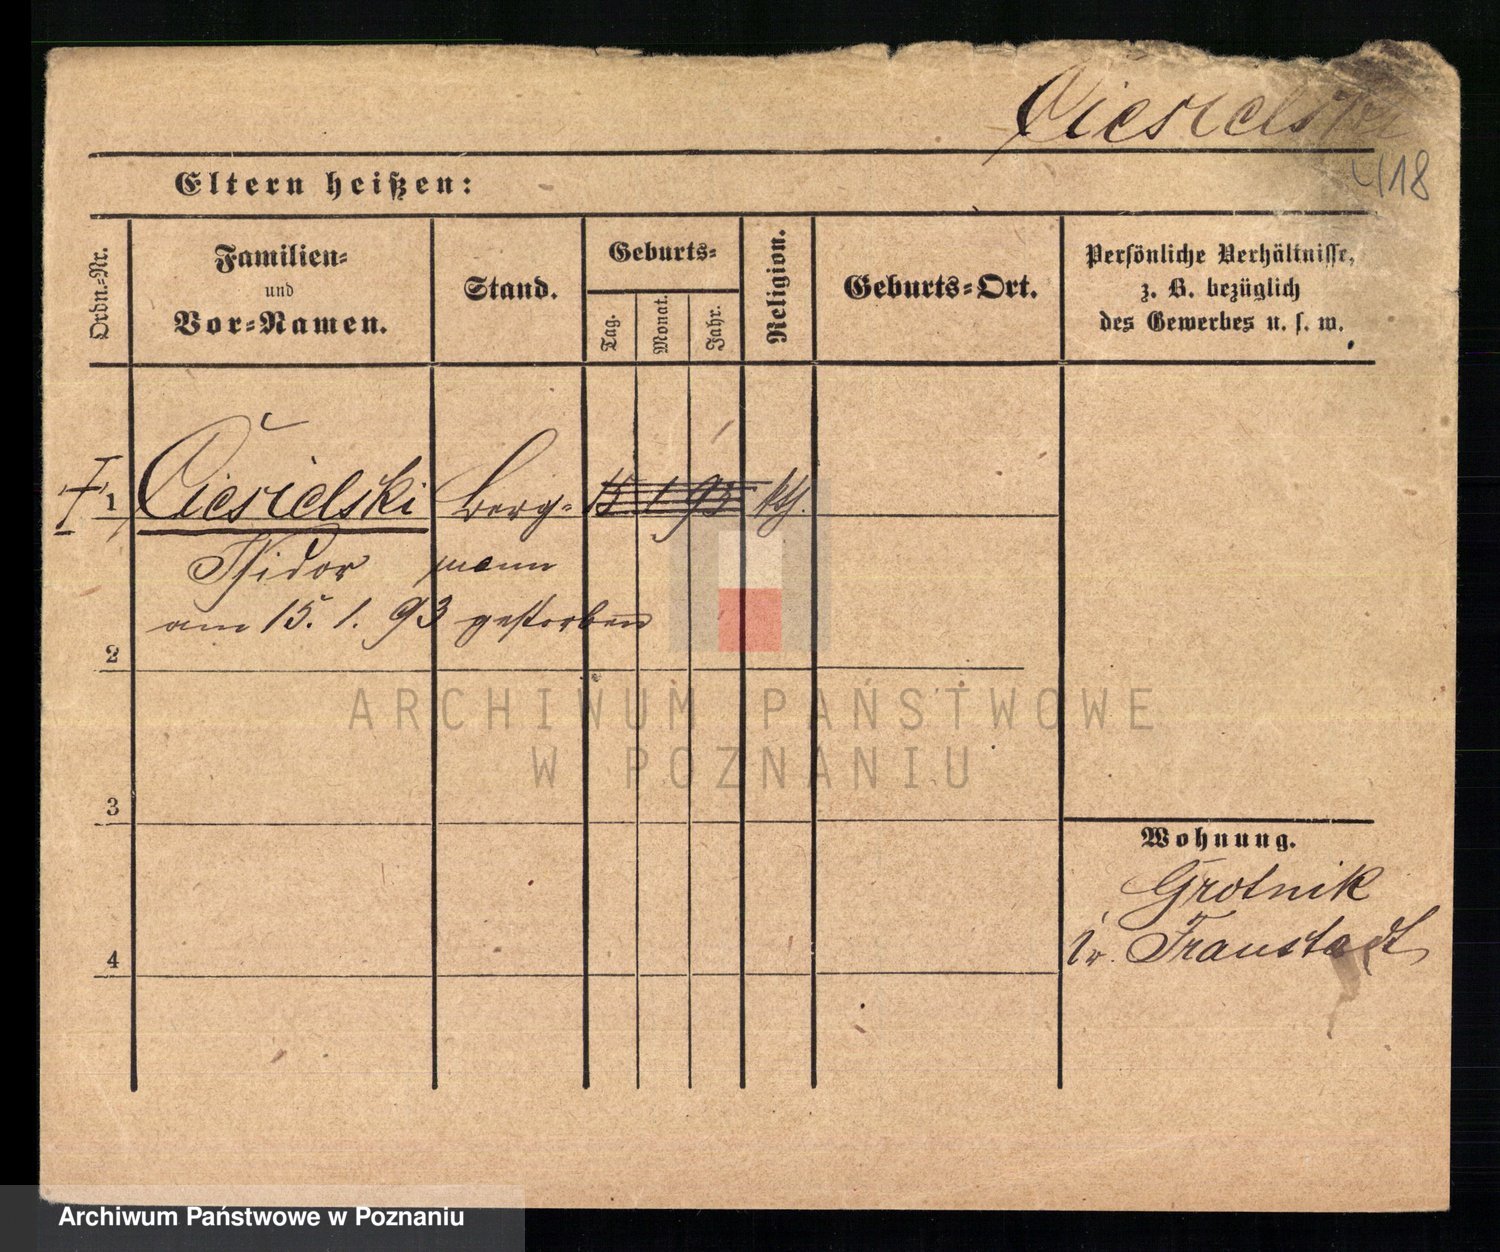 Ciesielski
418
Eltern heißen:
Ordn.-Nr.
Familien-
und
Vor-Namen.
Stand.
Geburts-
Tag.
Monat.
Jahr.
Religion.
Geburts-Ort.
Persönliche Verhältnisse,
z. B. bezüglich
des Gewerbes u. s. w.
1 Ciesielski Berg- 15 1 93 kth.
Isidor mann
am 15. 1. 93 gestorben
2
3
4
Wohnung.
Grotnik
Fraustadt
ARCHIWUM PAŃSTWOWE
W POZNANIU
Archiwum Państwowe w Poznaniu